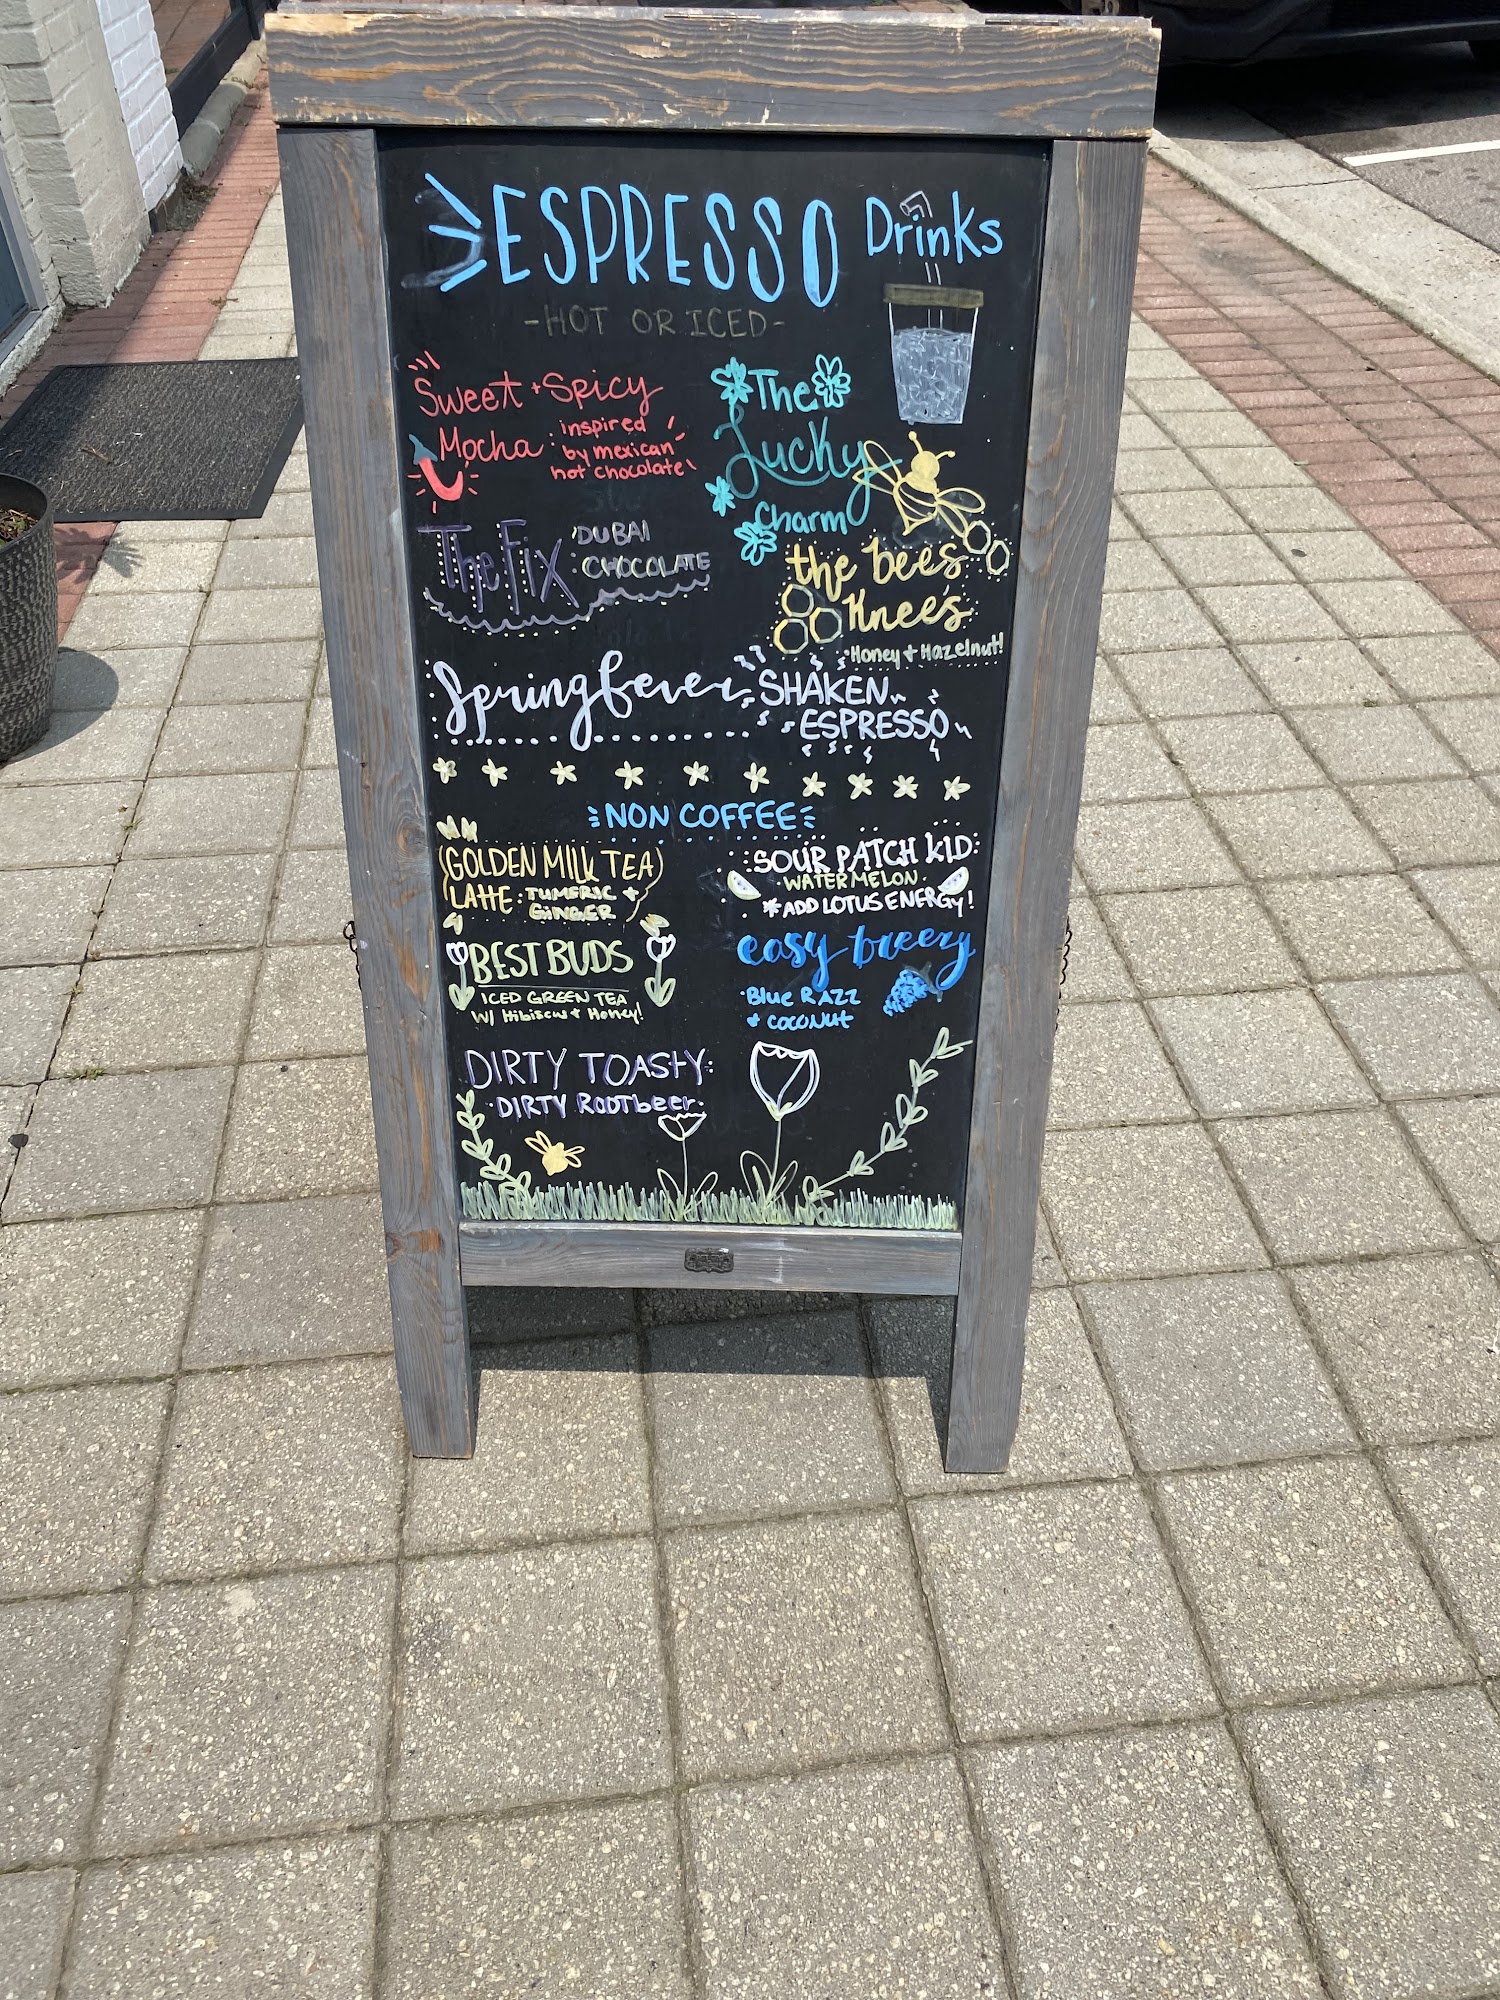 ESPRESSO Drinks
-HOT OR ICED-
Sweet + Spicy
Mocha : inspired
by mexican
hot chocolate
The Fix : DUBAI
CHOCOLATE
The
Lucky
charm
the bees
Knees
·Honey + Hazelnut!
Spring fever SHAKEN
ESPRESSO
NON COFFEE
GOLDEN MILK TEA
LATTE : TUMERIC +
GINGER
BEST BUDS
ICED GREEN TEA
W/ Hibiscus + Honey!
DIRTY TOASTY:
·DIRTY ROOTbeer·
SOUR PATCH KID:
·WATERMELON·
* ADD LOTUS ENERGY!
easy breezy
·Blue RAZZ
+ COCONUt